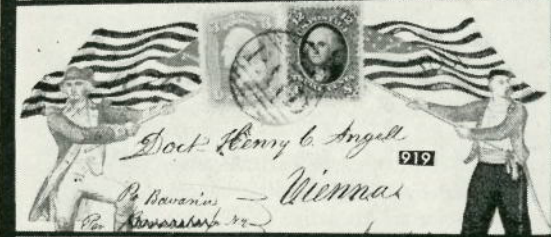 12 12
PAID
Doct Henry C. Angell
919
Vienna
Pr Bavaria
Per N.Y.